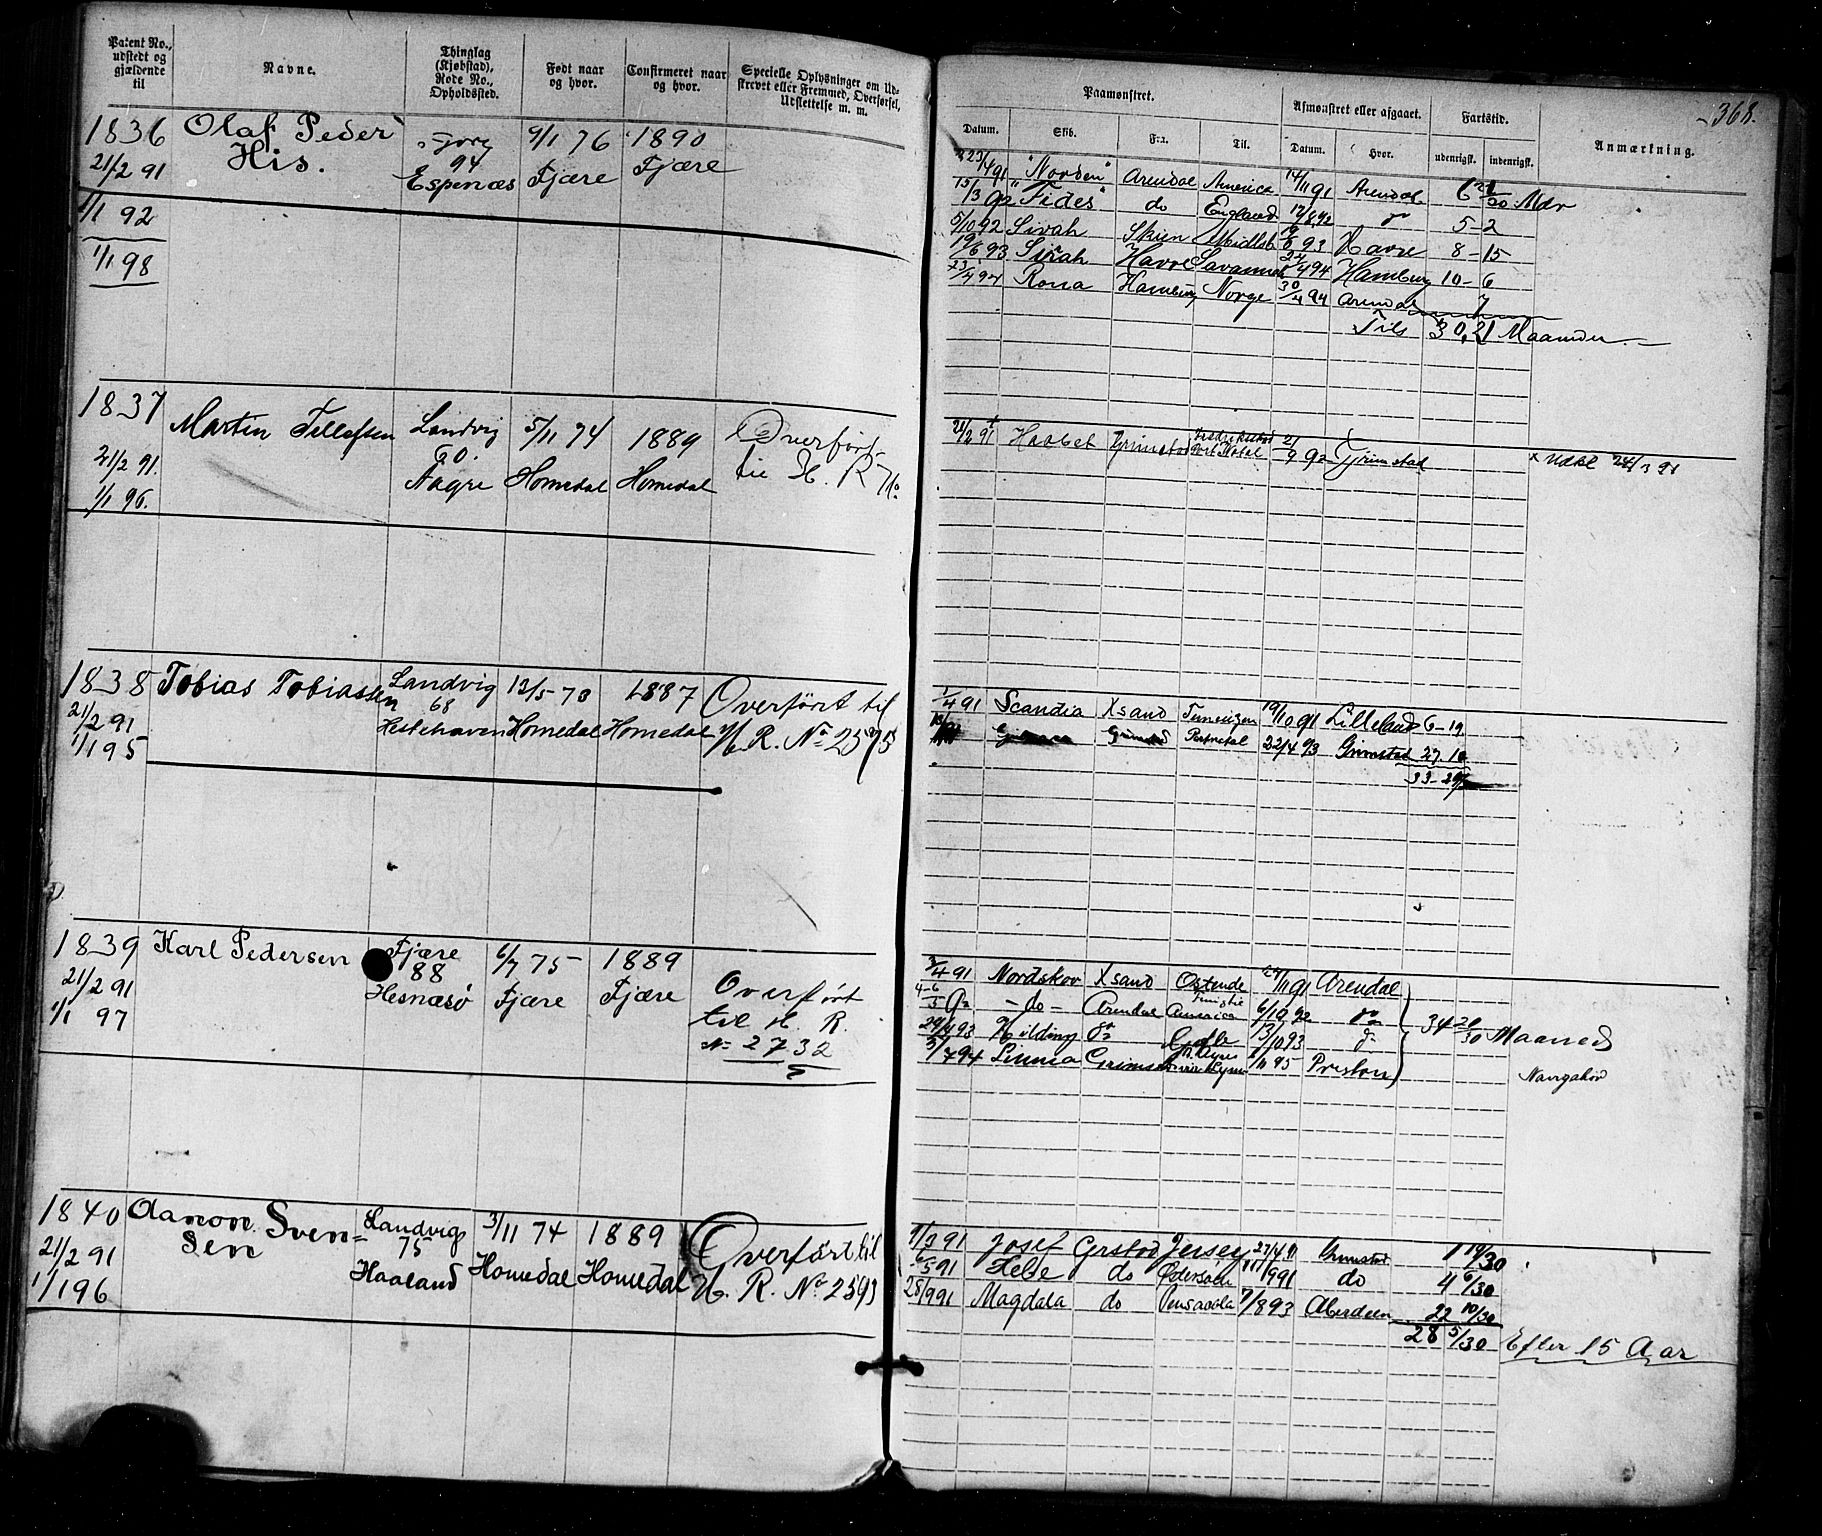 Patent No., udstedt og gjældende til
Navne.
Thinglag (Kjøbstad), Rode No., Opholdssted.
Født naar og hvor.
Confirmeret naar og hvor.
Specielle Oplysninger om Udskrevet eller Fremmed, Overførsel, Udslettelse m. m.
1836 Olaf Peder 9/1 76 1890
21/2 91 His. 94 Espenæs Fjære Fjære
1/1 92
1/1 98
1837 Martin Tellefsen Landvig 5/11 74 1889 Overført
21/2 91. 60. Homedal Homedal til H. R
1/1 96. Aagre
1838 Tobias Tobiassen Landvig 12/5 73 1887 Overført til
21/2 91 68 Hestehaven Homedal Homedal H. R. No 2575
1/1 95
1839 Karl Pedersen Fjære 6/7 75 1889
21/2 91 88 Hesnæsø Fjære Fjære Overført
1/1 97 til H. R.
No 2732
1840 Aanon Sven= Landvig 3/11 74 1889 Overført til
21/2 91 sen 75 Haaland Homedal Homedal H. R. No 2593
1/1 96
368.
Paamønstret.
Afmønstret eller afgaaet.
Fartstid.
Anmærkning.
Datum. Skib. Fra. Til. Datum. Hvor. udenrigsk. indenrigsk.
23/4 91 "Norden" Arendal America 14/11 91 Arendal 6 Mdr
15/3 92 "Fides" do England 12/8 92 5-2
5/10 92 Sirah Skien 93 Havre 8-15
19/6 93 Sirah Havre Savannah 494 Hamburg 10-6
23/4 94 Rona Hamburg Norge 30/4 94 Arendal 7
Tils 30,21 Maaneder.
21/2 91 Haabet Grimstad 92 Grimstad x Udsl 24/3 91
1/4 91 Scandia Xsand 19/10 91 6-19
Grimstad 22/4 93 Grimstad 27.10
33-29
3/4 91 Nordskov Xsand Ostende 91 Arendal
92 -do- Arendal America 6/10 92 34 Maaned
93 Hilding do Gefle 13/10 93
3/4 94 Linnea Grimstad 95 Preston Navigatør
91 Josef Grstad Jersey 27/4 91 Grimstad 1 19/30
6/5 91 Hebe do Østersøen 991 do 4 6/30
28/9 91 Magdala do Pensacola 7/8 93 Aberdeen 22 10/30
28 5/30 Efter 15 Aar